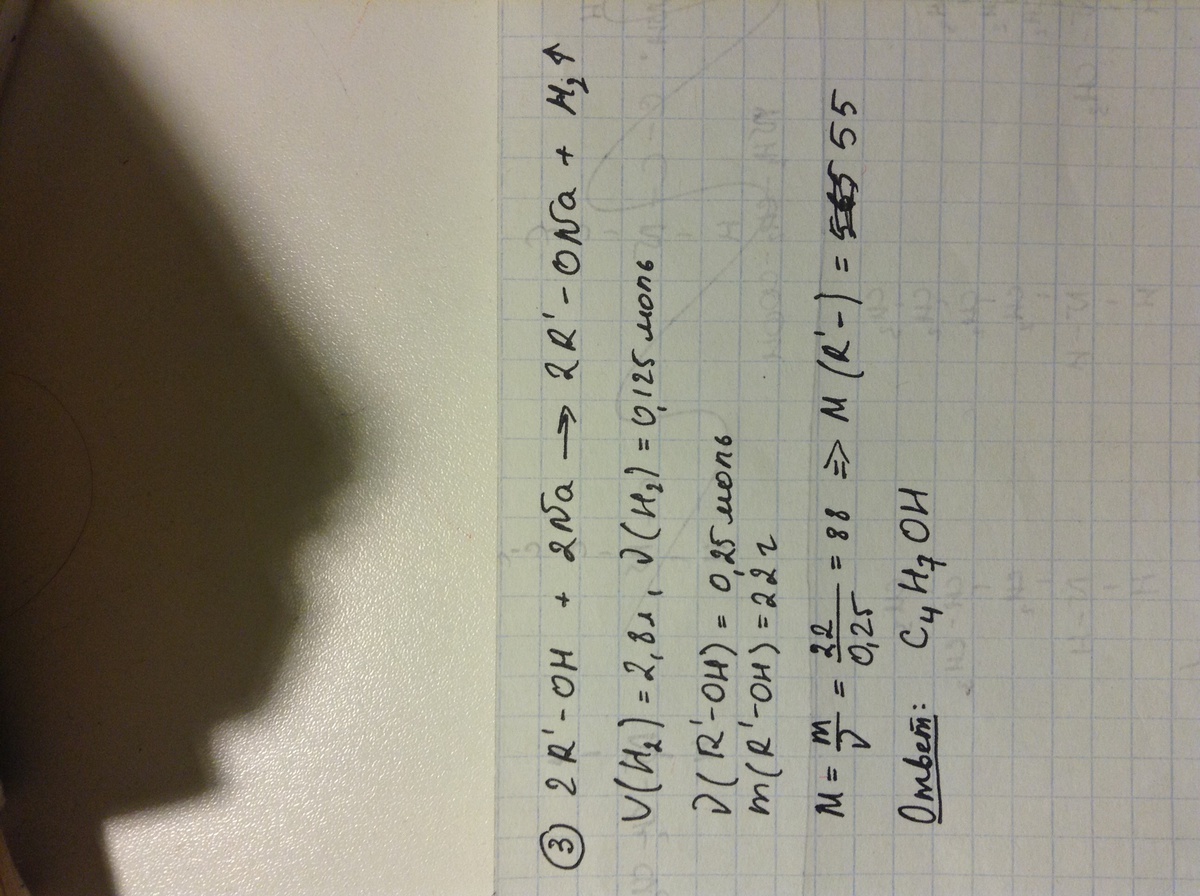 ③ 2R'-OH + 2Na → 2R'-ONa + H₂↑
V(H₂) = 2,8л, ν(H₂) = 0,125 моль
ν(R'-OH) = 0,25 моль
m(R'-OH) = 22 г
M = m/ν = 22/0,25 = 88 => M(R'-) = 55
Ответ: C₄H₇OH